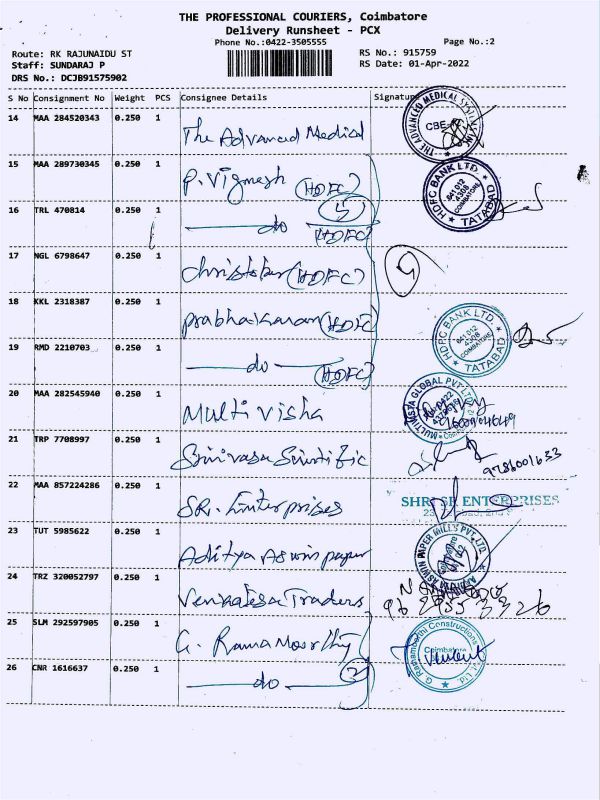 THE PROFESSIONAL COURIERS, Coimbatore
Delivery Runsheet - PCX
Phone No.:0422-3505555
Page No.:2
Route: RK RAJUNAIDU ST
RS No.: 915759
Staff: SUNDARAJ P
RS Date: 01-Apr-2022
DRS No.: DCJB91575902
S No Consignment No Weight PCS Consignee Details Signature
14 MAA 284520343 0.250 1 The Advanced Medical
THE ADVANCED MEDICAL CBE
15 MAA 289730345 0.250 1 P. Vignesh (HDFC)
HDFC BANK LTD. 641 012 4308 COIMBATORE TATABAD
5
16 TRL 470814 0.250 1 do (HDFC)
17 NGL 6798647 0.250 1 Christober (HDFC)
18 KKL 2318387 0.250 1 prabhakaran (HDFC
HDFC BANK LTD. 641 012 4308 COIMBATORE TATABAD
19 RMD 2210703 0.250 1 do (HDFC)
20 MAA 282545940 0.250 1 Multi visha
MULTIVISTA GLOBAL PVT LTD
21 TRP 7708997 0.250 1 Srinivasa Scintific
9786001633
22 MAA 857224286 0.250 1 SR. Enterprises
SHR ENTERPRISES
23 TUT 5985622 0.250 1 Aditya Aswin paper
ADITYA ASWIN PAPER MILLS PVT. LTD.
24 TRZ 320052797 0.250 1 Venkatesa Traders
25 SLM 292597905 0.250 1 G. Rama Moorthy
G. Ramamoorthi Constructions Coimbatore
26 CNR 1616637 0.250 1 do
2